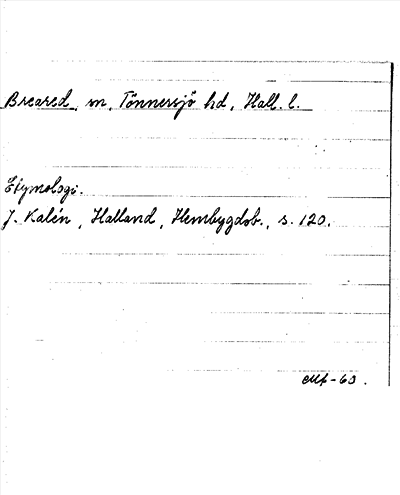 Breared, sn, Tönnersjö hd, Hall. l.
Etymologi.
J. Kalén, Halland, Hembygdsb., s. 120.